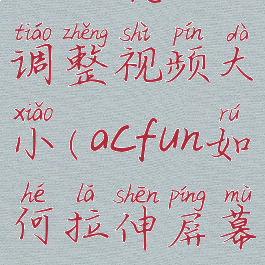 tiáo zhěng shì pín dà
调整视频大
xiǎo rú
小(acfun如
hé lā shēn píng mù
何拉伸屏幕